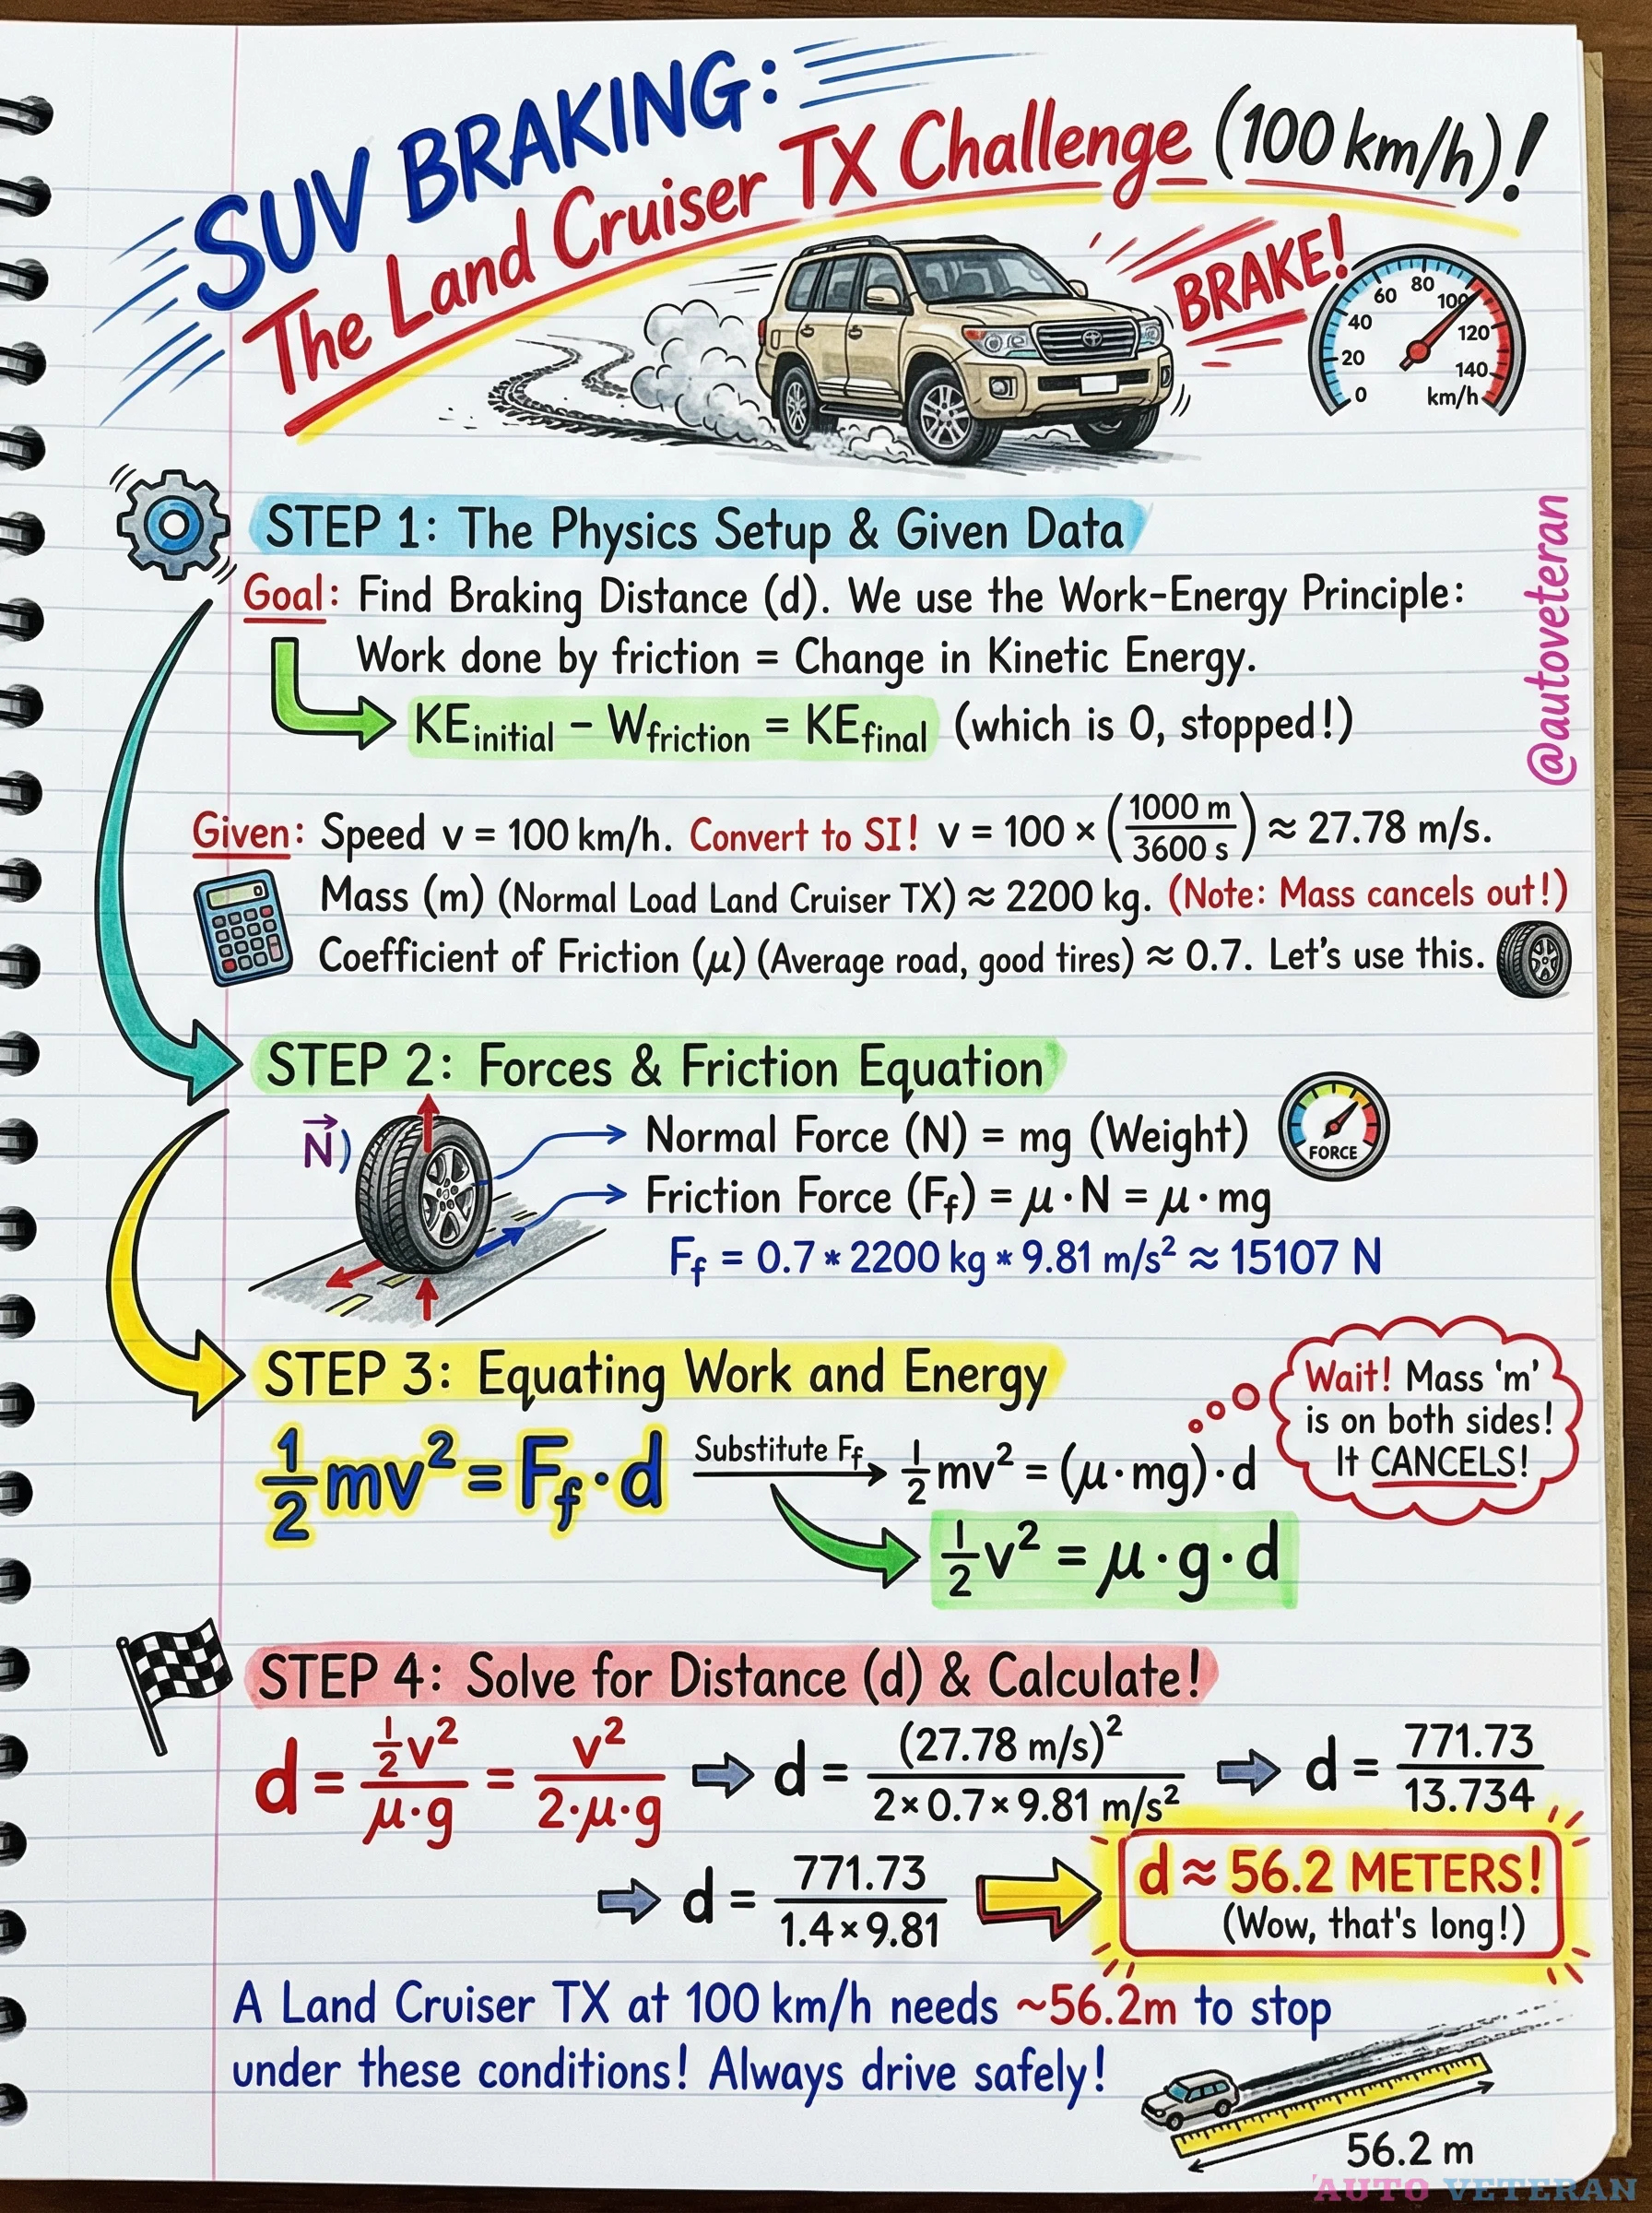 SUV BRAKING:
The Land Cruiser TX Challenge (100 km/h)!
BRAKE!
0 20 40 60 80 100 120 140
km/h
STEP 1: The Physics Setup & Given Data
@autoveteran
Goal: Find Braking Distance (d). We use the Work-Energy Principle:
Work done by friction = Change in Kinetic Energy.
KE_initial − W_friction = KE_final (which is 0, stopped!)
Given: Speed v = 100 km/h. Convert to SI! v = 100 × (1000 m / 3600 s) ≈ 27.78 m/s.
0
Mass (m) (Normal Load Land Cruiser TX) ≈ 2200 kg. (Note: Mass cancels out!)
Coefficient of Friction (μ) (Average road, good tires) ≈ 0.7. Let's use this.
STEP 2: Forces & Friction Equation
N⃗)
Normal Force (N) = mg (Weight)
FORCE
Friction Force (F_f) = μ · N = μ · mg
F_f = 0.7 * 2200 kg * 9.81 m/s² ≈ 15107 N
STEP 3: Equating Work and Energy
Wait! Mass 'm'
is on both sides!
It CANCELS!
½mv² = F_f · d Substitute F_f ½mv² = (μ · mg) · d
½v² = μ · g · d
STEP 4: Solve for Distance (d) & Calculate!
d = ½v² / μ·g = v² / 2·μ·g ⇨ d = (27.78 m/s)² / 2 × 0.7 × 9.81 m/s² ⇨ d = 771.73 / 13.734
⇨ d = 771.73 / 1.4 × 9.81
d ≈ 56.2 METERS!
(Wow, that's long!)
A Land Cruiser TX at 100 km/h needs ~56.2m to stop
under these conditions! Always drive safely!
56.2 m
'AUTO VETERAN